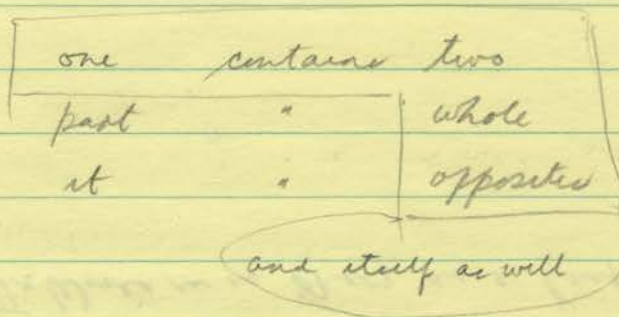 one contains two
part " whole
it " opposites
and itself as well